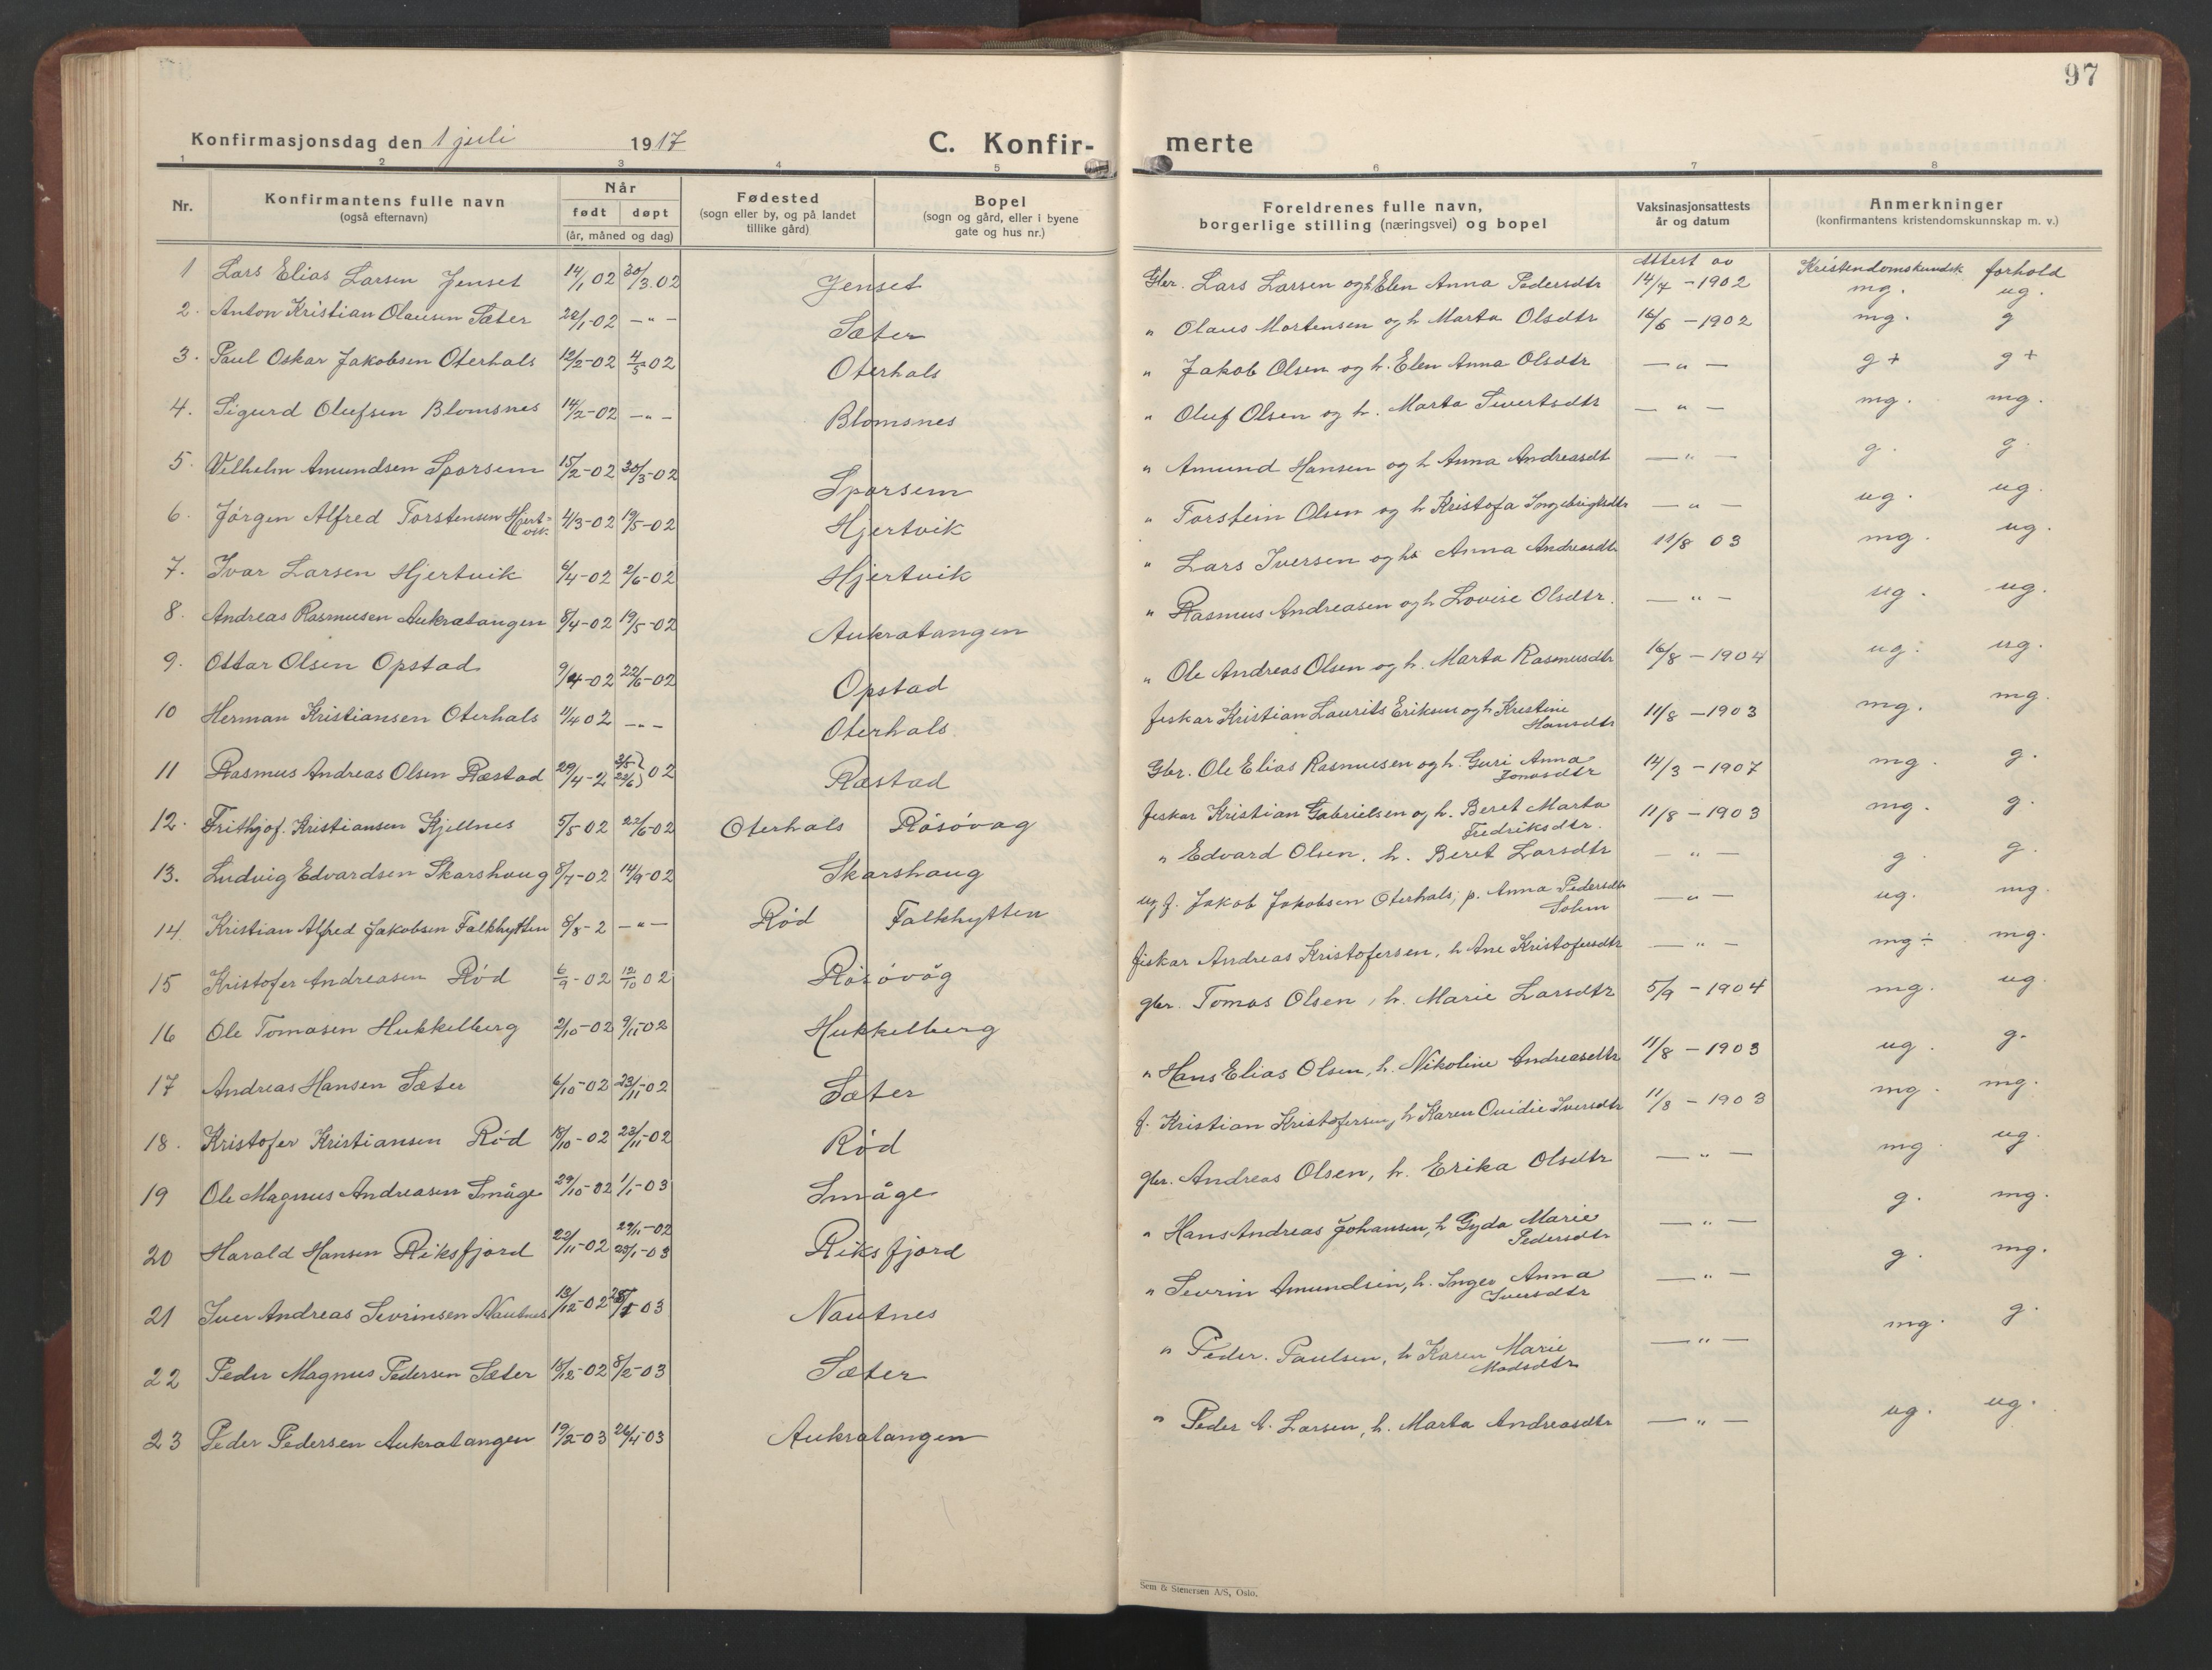 97
Konfirmasjonsdag den 1 juli 1917 C. Konfir- merte
1 2 3 4 5 6 7 8
Nr. Konfirmantens fulle navn (også efternavn) Når født døpt (år, måned og dag) Fødested (sogn eller by, og på landet tillike gård) Bopel (sogn og gård, eller i byene gate og hus nr.) Foreldrenes fulle navn, borgerlige stilling (næringsvei) og bopel Vaksinasjonsattests år og datum Anmerkninger (konfirmantens kristendomskunnskap m. v.)
Attest av Kristendomskundsk forhold
1 Lars Elias Larsen Jenset 14/1 02 30/3.02 Jenset Gbr. Lars Larsen og h Elen Anna Pedersdtr 14/7 - 1902 mg. ug.
2. Anton Kristian Olausen Sæter 22/1-02 - " - Sæter " Olaus Mortensen og h Marta Olsdtr 16/6 - 1902 mg. g
3. Paul Oskar Jakobsen Oterhals 12/2-02 4/5 02 Oterhals " Jakob Olsen og h. Elen Anna Olsdtr - " - g+ g+
4. Sigurd Olufsen Blomsnes 14/2-02 - " - Blomsnes " Oluf Olsen og h. Marta Sivertsdtr - " - mg. mg.
5. Vilhelm Amundsen Sporsem 15/2-02 30/3-02 Sporsem " Amund Hansen og h Anna Andreasdt - " - g. g.
6. Jörgen Alfred Torstensen Hjertvik. 4/3-02 19/5-02 Hjertvik " Torstein Olsen og h Kristofa Ingebrigtsdtr - " - ug. ug.
7. Ivar Larsen Hjertvik 6/4-02 2/6-02 Hjertvik " Lars Iversen og h Anna Andreasdtr 11/8 03 mg. ug.
8. Andreas Rasmusen Aukratangen 8/4-02 19/5-02 Aukratangen " Rasmus Andreasen og h Lovise Olsdtr. - " - ug. ug.
9. Ottar Olsen Opstad 9/4-02 22/6-02 Opstad " Ole Andreas Olsen og h. Marta Rasmusdtr 16/8 - 1904 ug. ug.
10 Herman Kristiansen Oterhals 11/4 02 - " - Oterhals fiskar Kristian Laurits Eriksen og h Kristine Hansdtr 11/8 - 1903 mg. mg.
11 Rasmus Andreas Olsen Ræstad 29/4-2 3/5 22/6 } 02 Ræstad Gbr. Ole Elias Rasmusen og h. Guri Anna Jonasdtr 14/3 - 1907 mg. g.
12. Frithjof. Kristiansen Kjellnes 5/5-02 22/6-02 Oterhals Rösövag fiskar Kristian Gabrielsen og h. Beret Marta Fredriksdtr. 11/8 - 1903 mg. g.
13. Ludvig Edvardsen Skarshaug 8/7-02 14/9-02 Skarshaug " Edvard Olsen, h. Beret Larsdtr - " - g g.
14 Kristian Alfred Jakobsen Falkhytten 8/8-2 - " - Rød Falkhytten ug f. Jakob Jakobsen Oterhals, p. Anna Pedersdtr - " - ug. mg.
15 Kristofer Andreasen Rød 6/9-02 12/10 02 Rösövåg fiskar Andreas Kristofersen, h Ane Kristofersdtr - " - mg÷ mg.
16 Ole Tomasen Hukkelberg 2/10-02 9/11-02 Hukkelberg gbr. Tomas Olsen, h. Marie Larsdtr 5/9 - 1904 mg. ug.
17 Andreas Hansen Sæter 6/10-02 23/11-02 Sæter " Hans Elias Olsen, h. Nikoline Andreasdtr 11/8 - 1903 ug. g.
18. Kristofer Kristiansen Rød 18/10-02 23/11-02 Rød f. Kristian Kristofersen, h Karen Ovidie Iversdtr 11/8 - 1903 mg. mg.
19 Ole Magnus Andreasen Småge 29/10-02 1/1-03 Småge gbr. Andreas Olsen, h. Erika Olsdtr - " - mg. ug.
20 Harald Hansen Riksfjord 22/11-02 29/11-02 25/1-03 Riksfjord " Hans Andreas Johansen, h Gyda Marie Pedersdtr - " - g. mg.
21 Iver Andreas Sevrinsen Nautnes 13/12-02 03 Nautnes " Sevrin Amundsen, h. Inger Anna Iversdtr - " - g. mg.
22 Peder Magnus Pedersen Sæter 18/12-02 8/2-03 Sæter " Peder. Paulsen, h Karen Marie Madsdtr - " - mg. g.
23 Peder Pedersen Aukratangen 19/2-03 26/4-03 Aukratangen " Peder A. Larsen, h. Marta Andreasdtr - " - ug. ug.
Sem & Stenersen A/S, Oslo.